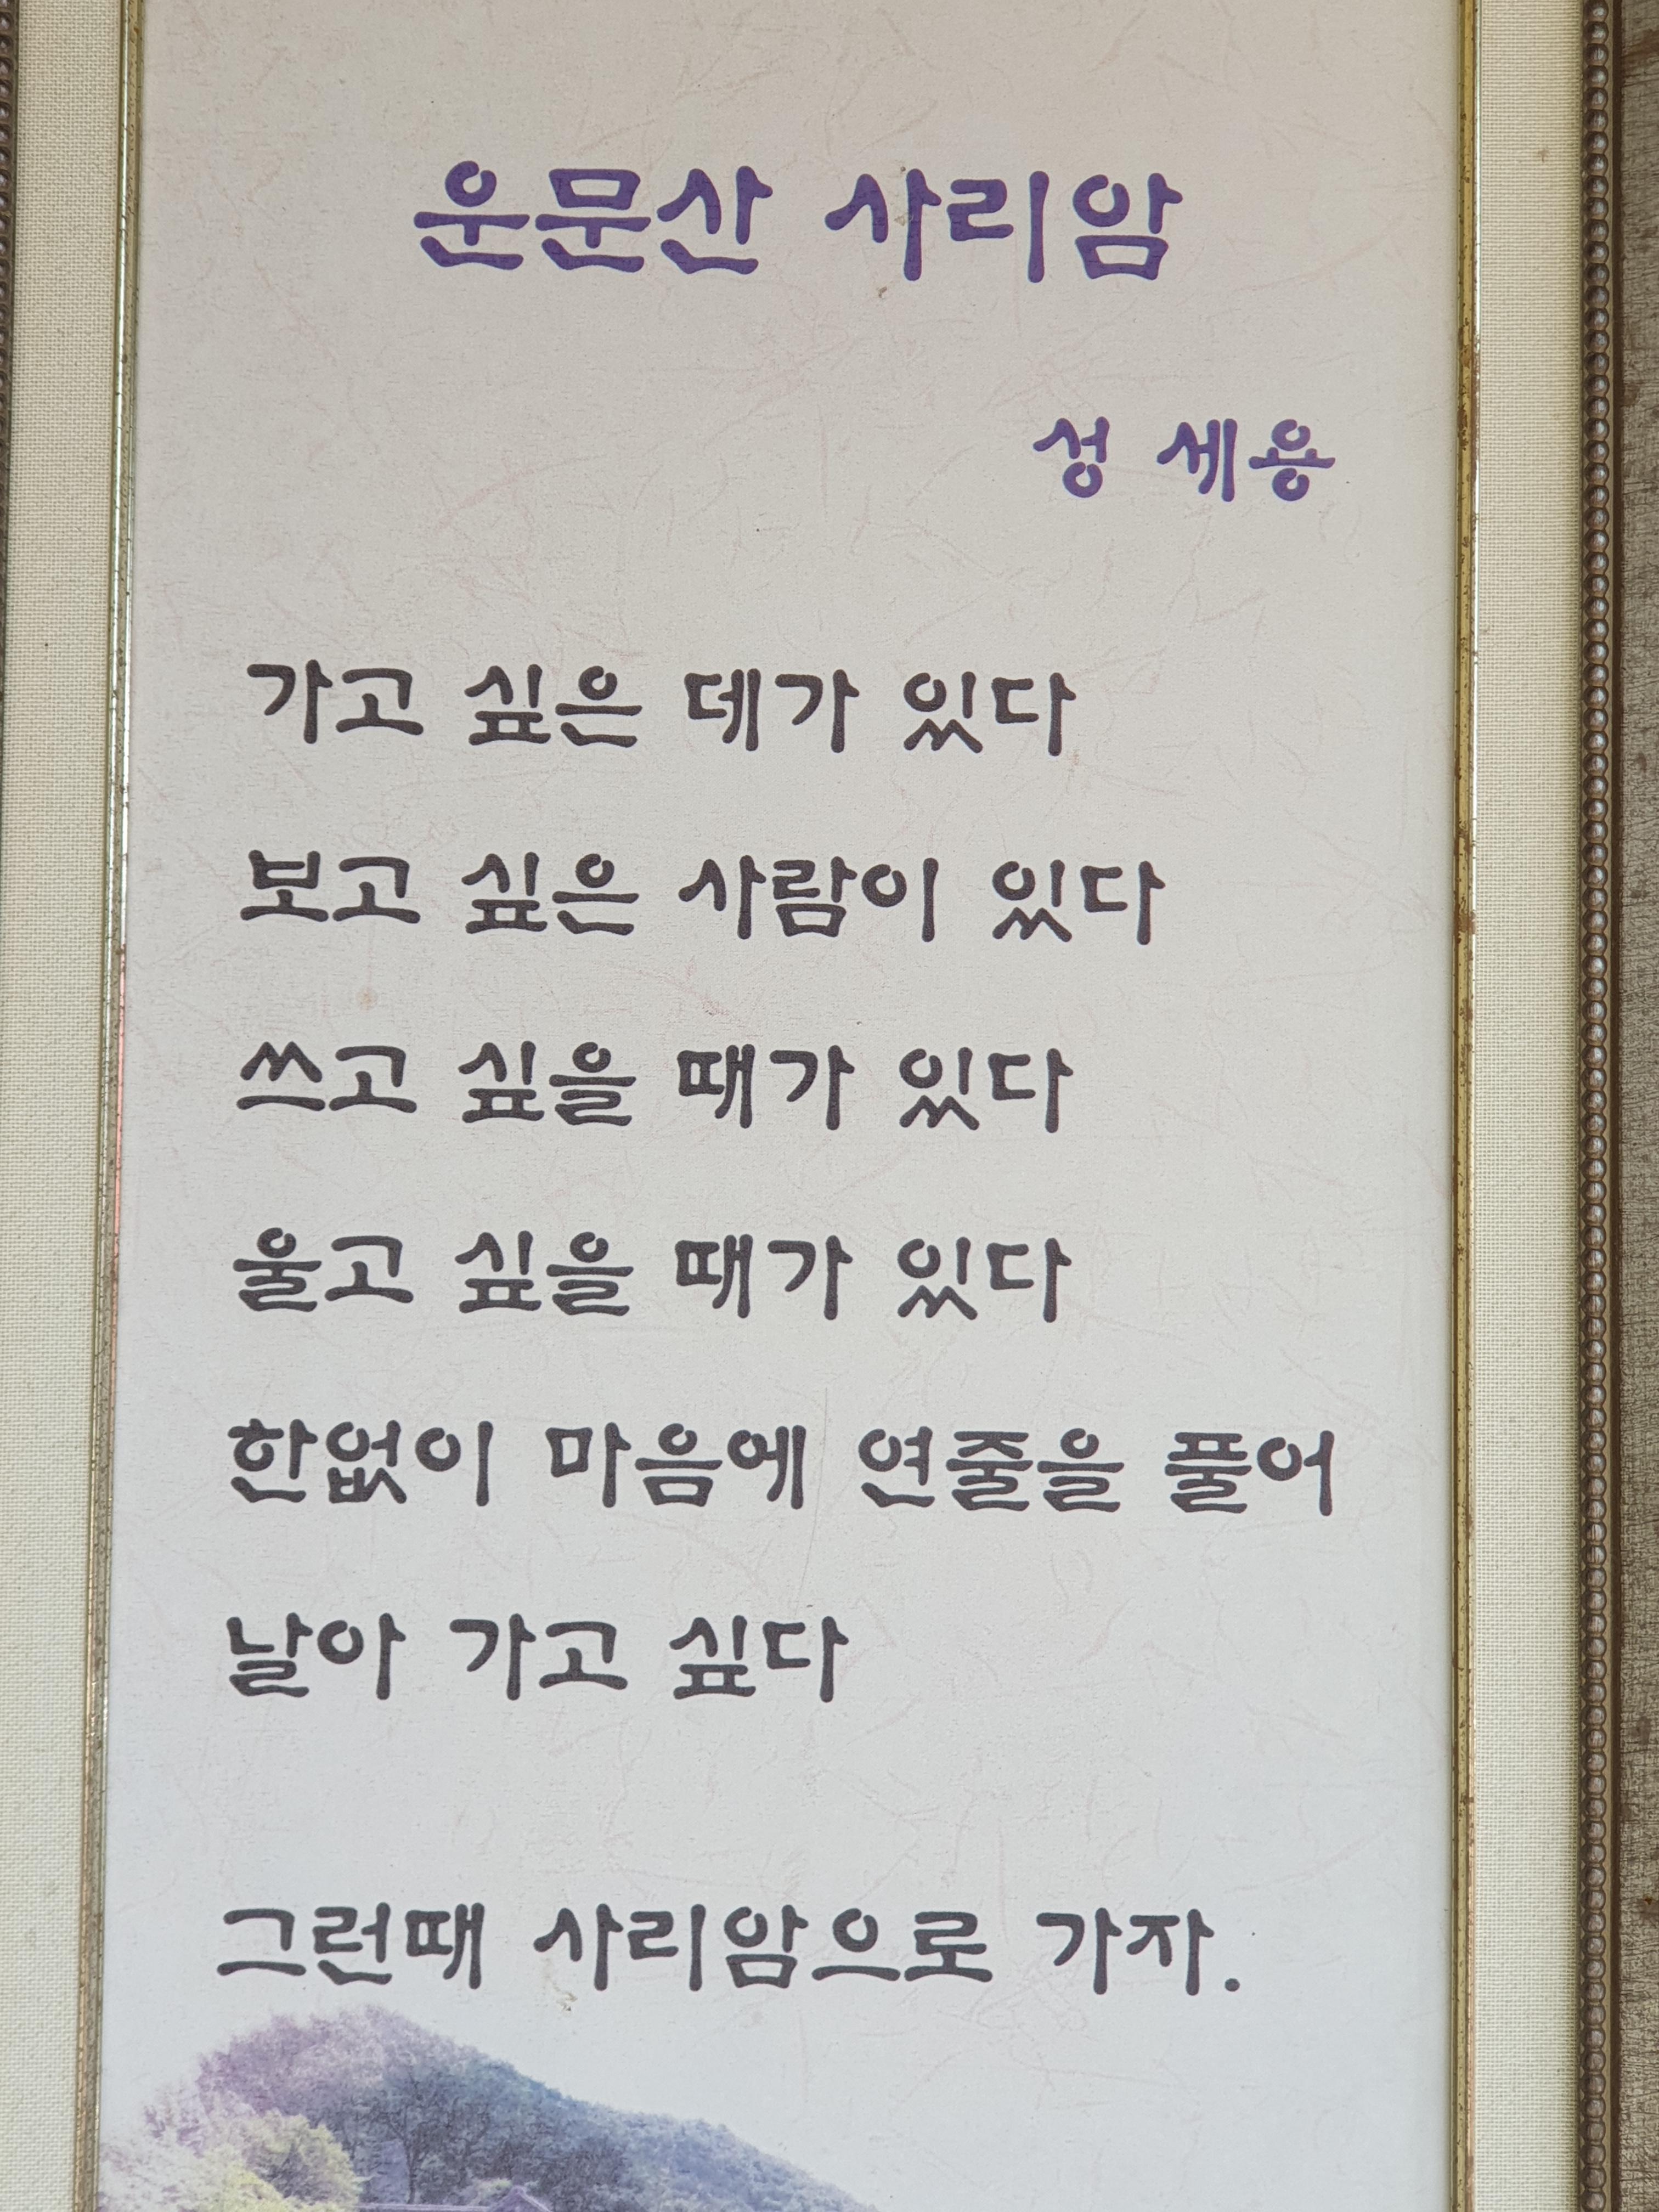 운문산 사리암
성 세용
가고 싶은 데가 있다
보고 싶은 사람이 있다
쓰고 싶을 때가 있다
울고 싶을 때가 있다
한없이 마음에 연줄을 풀어
날아 가고 싶다
그런때 사리암으로 가자.